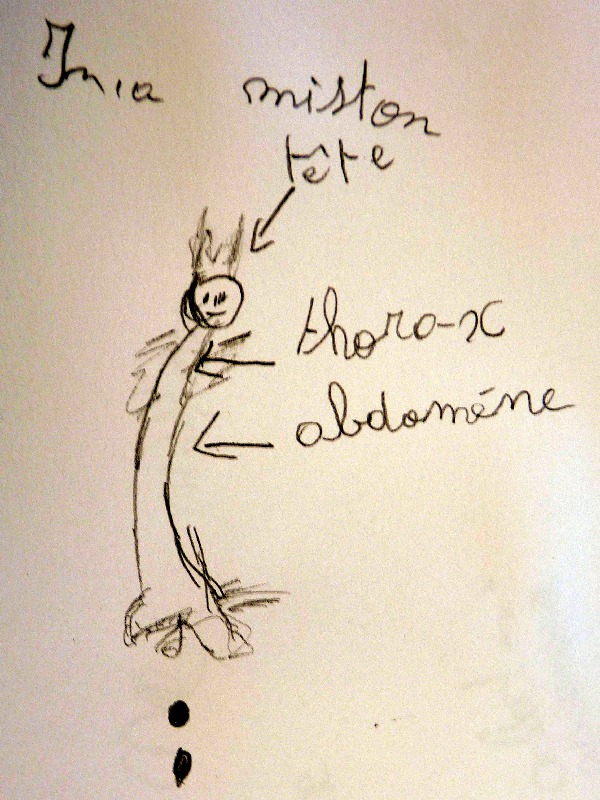 Inia miston
tête
thorax
abdomène